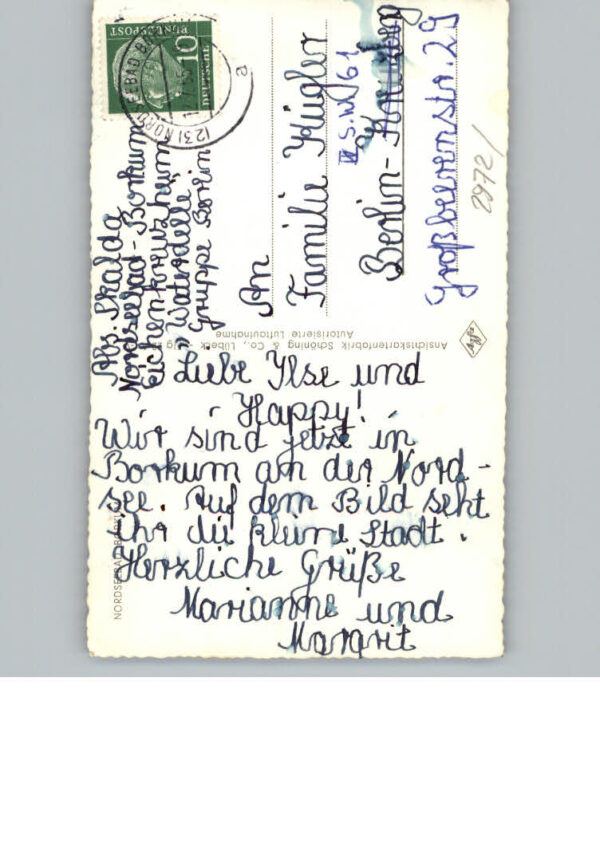 Liebe Ilse und
Happy!
Wir sind jetzt in
Borkum an der Nord-
see. Auf dem Bild seht
ihr die kleine Stadt.
Herzliche Grüße
Marianne und
Margrit
Abs. Skalda
Nordseebad-Borkum
Eichenkreuzheim
"Waterdelle"
Gruppe Berlin
An
Familie Kügler
S.W. 61
Berlin-
Großbeerenstr. 29
2972/
Ansichtskartenfabrik Schöning & Co., Lübeck
Autorisierte Luftaufnahme
Agfa
NORDSEEBAD BORKUM
DEUTSCHE
BUNDESPOST
10
(23) NORDSEEBAD
a